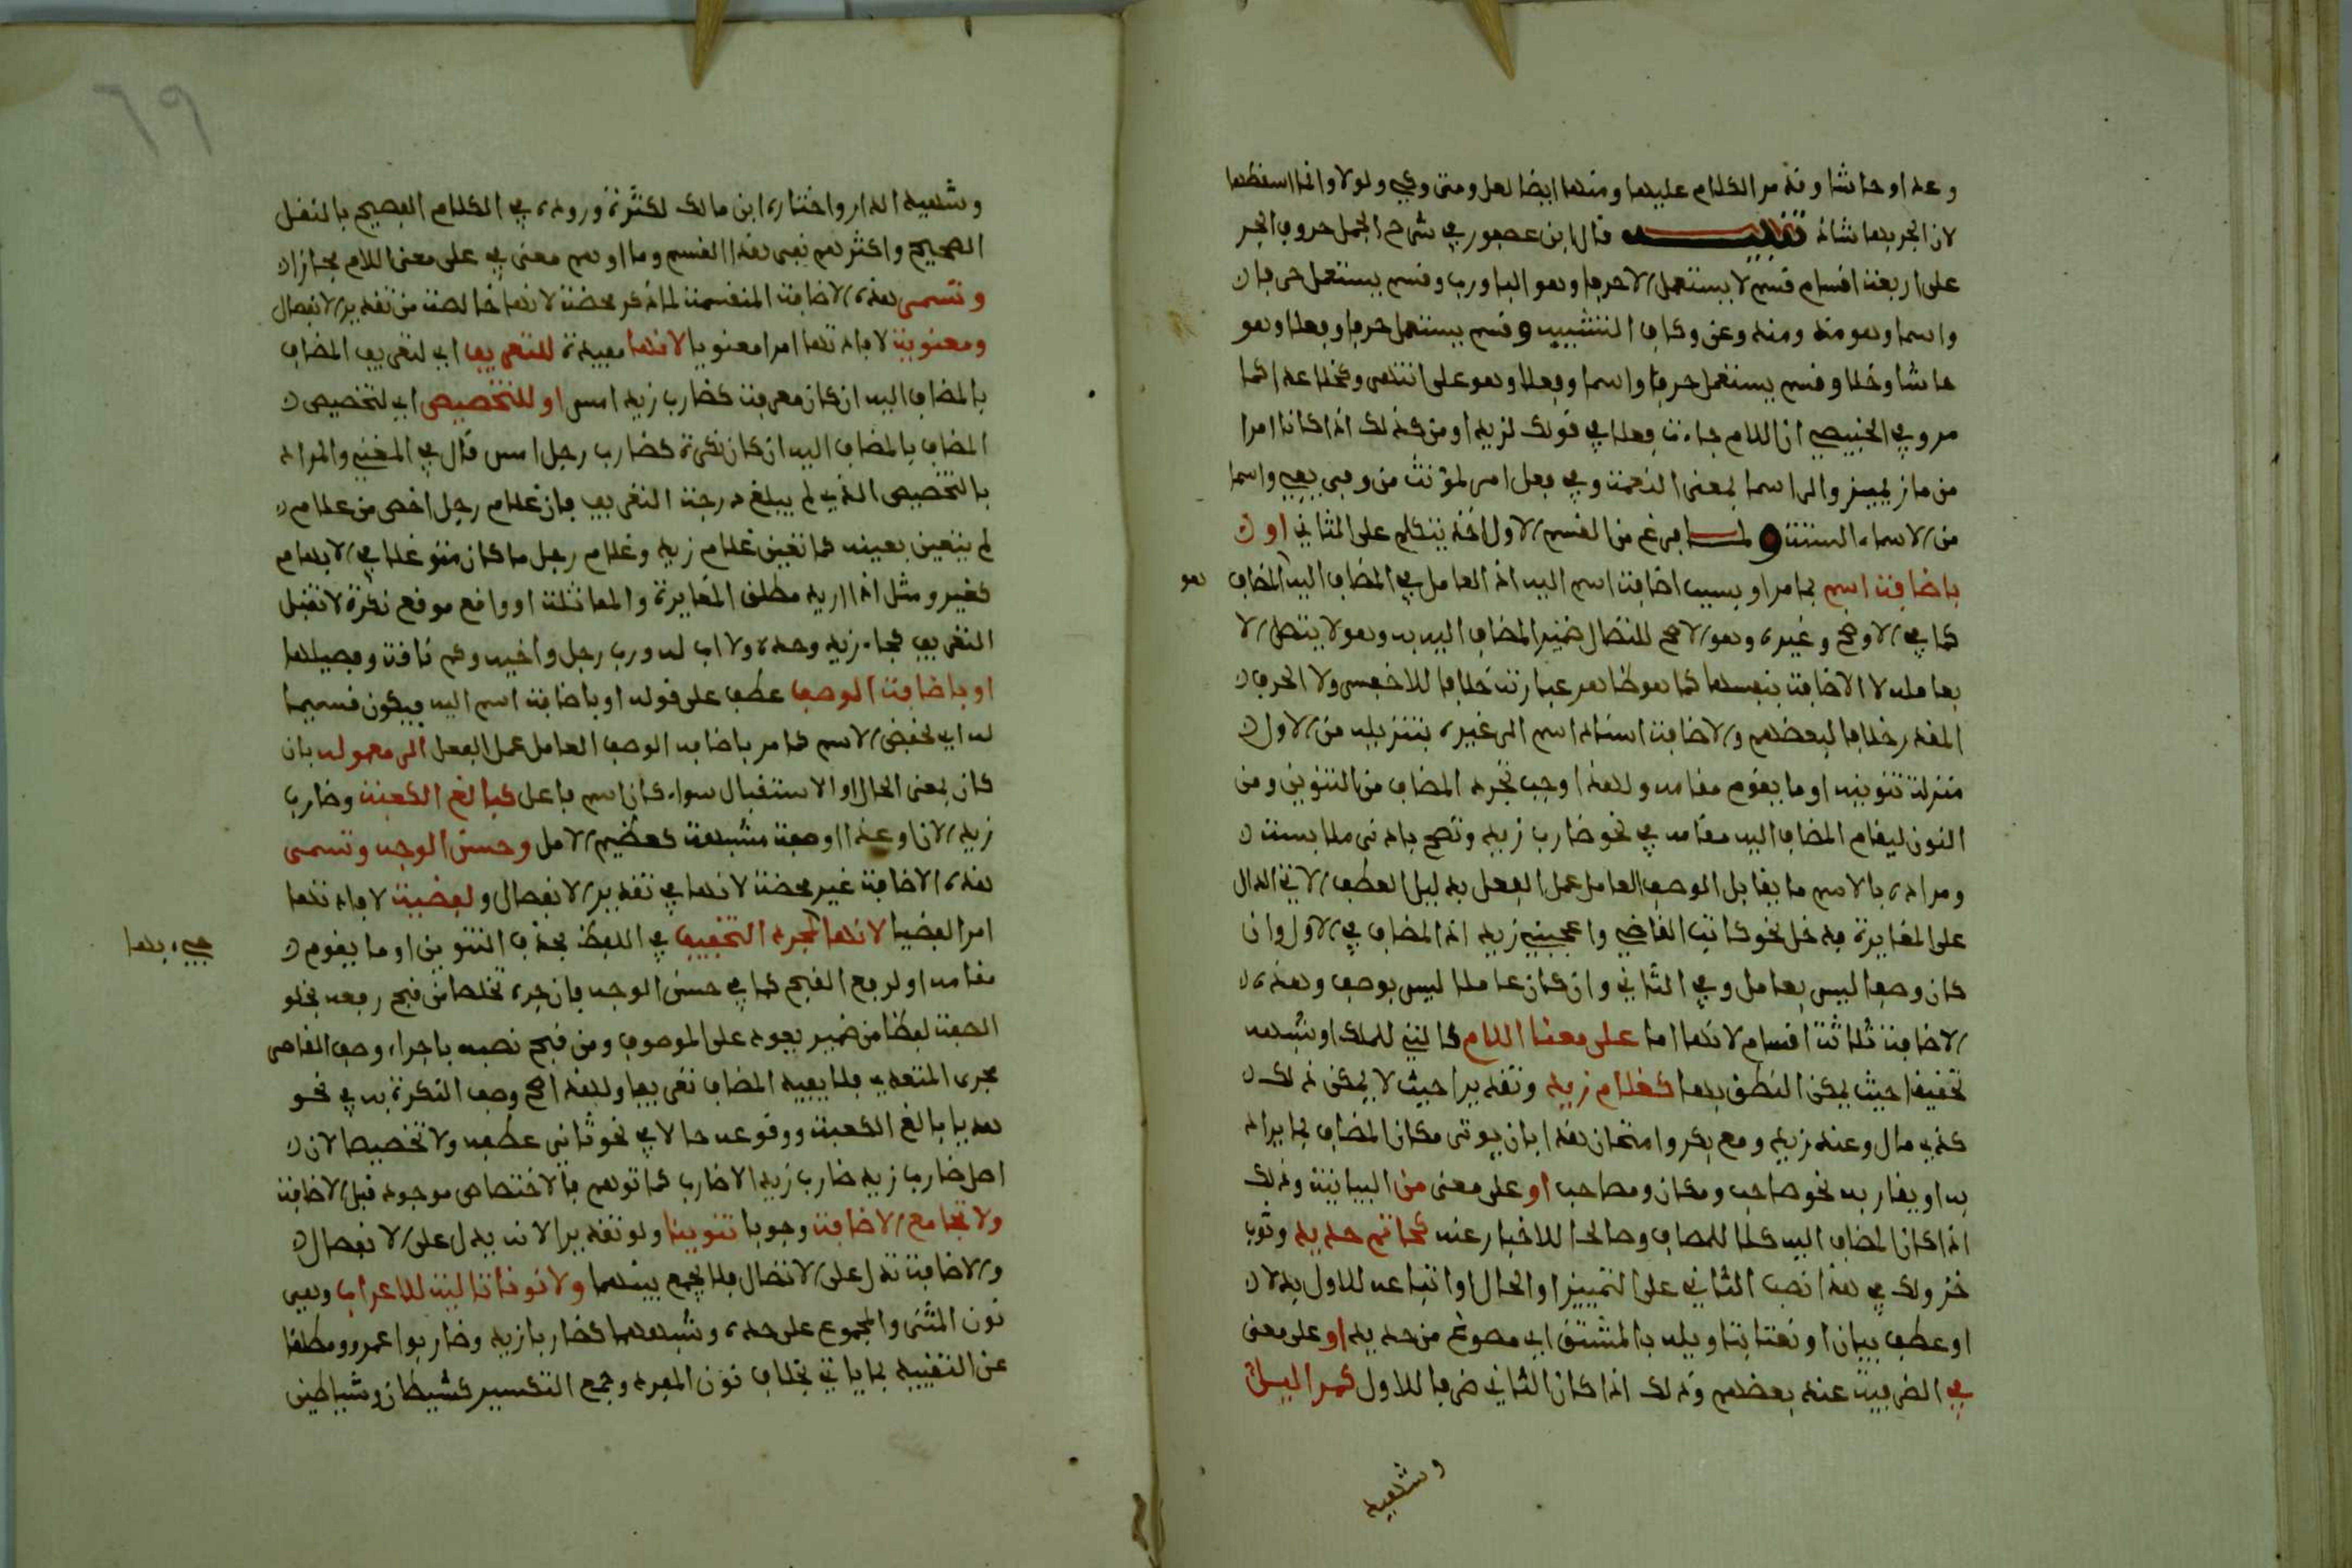 وعدا وحاشا وقد مر الكلام عليها ومنها ايضا لعل ومتى وكي ولولا وانما اسقطها
لان الجر بها شاذ تنبيه قال ابن عصفور في شرح الجمل حروف الجر
على اربعة اقسام قسم لا يستعمل الا حرفا وهو الباء ورب وقسم يستعمل حرفا
واسما وهو مذ ومنذ وعن وكاف التشبيه وقسم يستعمل حرفا وفعلا وهو
حاشا وخلا وقسم يستعمل حرفا واسما وفعلا وهو على انتهى وكخلا عدا كما
مر وفي ان اللام جاءت فعلا في قولك لزيد ا ومن كذلك اذا كانا امرا
من مان يمين والى اسما لمعنى النعمة وفي فعل امر لمؤنث من وفى يفي واسما
من الاسماء الستة ولما فرغ من القسم الاول اخذ يتكلم على الثاني او
باضافة اسم بما مر او بسبب اضافة اسم اليه اذ العامل في المضاف اليه المضاف
هو
كما في الاوضح وغيره وهو الاصح للتصال ضمير المضاف اليه به وهو لا يتصل الا
بعامله لا الاضافة بنفسها كما هو ظاهر عبارته خلافا للاخفش ولا الحرف
المقدر خلافا لبعضهم والاضافة اسناد اسم الى غيره بتنزيله من الاول
منزلة تنوينه او ما يقوم مقامه ولهذا وجب تجرد المضاف من التنوين ومن
النون ليقام المضاف اليه مقامه في نحو ضارب زيد وتصح بادنى ملابسة
ومراده بالاسم ما يقابل الوصف العامل عمل الفعل بدليل العطف الاتي الدال
على المغايرة فدخل نحو كاتب القاضي واعجبني زيد اذ المضاف في الاول وان
كان وصفا ليس بعامل وفي الثاني وان كان عاملا ليس بوصف وهذه
الاضافة ثلاثة اقسام لانها اما على معنا اللام كالتي للملك او شبهه
تحقيقا حيث يمكن النطق بها كغلام زيد وتقديرا حيث لا يمكن ذلك
كذي مال وعند زيد ومع بكر وامتحان هذا بان يوتى مكان المضاف بما يرادف
به او يقاربه نحو صاحب ومكان ومصاحب او على معنى من البيانية وذلك
اذا كان المضاف اليه كلا للمضاف وصالحا للاخبار عنه كخاتم حديد وثوب
خز ولك في هذا نصب الثاني على التمييز او الحال او اتباعه للاول بدلا
او عطف بيان او نعتا بتاويله بالمشتق اي مصوغ من حديد او على معنى
في الضرفية عند بعضهم وذلك اذا كان الثاني ضرفا للاول كمر الليل
وشهيد
٦٩
وشهيد الدار واختاره ابن مالك لكثرة وروده في الكلام الفصيح بالنقل
الصحيح واكثرهم نفى هذا القسم وما اوهم معنى في على معنى اللام مجازا
وتسمى هذه الاضافة المنقسمة لما ذكر محضة لانها خالصة من تقدير الانفصال
ومعنوية لافادتها امرا معنويا لانها مفيدة للتعريف اي لتعريف المضاف
بالمضاف اليه ان كان معرفة كضارب زيد امس او للتخصيص اي لتخصيص
المضاف بالمضاف اليه ان كان نكرة كضارب رجل امس قال في المغني والمراد
بالتخصيص الذي لم يبلغ درجة التعريف فان غلام رجل اخص من غلام
لم يتعين بعينه كما تعين غلام زيد وغلام رجل ما كان متوغلا في الابهام
كغير ومثل اذا اريد مطلق المغايرة والمماثلة او واقع موقع نكرة لا تقبل
التعريف كجاء زيد وحده ولا اب له ورب رجل واخيه وكم ناقة وفصيلها
او باضافة الوصف عطف على قوله او باضافة اسم اليه فيكون قسيما
له اي يخفض الاسم كما مر باضافة الوصف العامل عمل الفعل الى معموله بان
كان بمعنى الحال او الاستقبال سواء كان اسم فاعل كبالغ الكعبة وضارب
زيد الان او غدا او صفة مشبهة كعظيم الامل وحسن الوجه وتسمى
هذه الاضافة غير محضة لانها في تقدير الانفصال ولفضية لافادتها
امرا لفضيا لانها لمجرد التخفيف في اللفظ بحذف التنوين او ما يقوم
جيء بها
مقامه او لرفع القبح كما في حسن الوجه فان جره تخلصا من قبح رفعه بخلو
الصفة لفظا من ضمير يعود على الموصوف ومن قبح نصبه باجراء وصف القاصر
مجرى المتعدي فلا يفيد المضاف تعريفا ولهذا صح وصف النكرة به في نحو
هديا بالغ الكعبة ووقوعه حالا في نحو ثاني عطفه ولا تخصيصا لان
اصل ضارب زيد ضارب زيدا لا ضارب كما توهم فالاختصاص موجود قبل الاضافة
ولا تجامع الاضافة وجوبا تنوينا ولو تقديرا لانه يدل على الانفصال
والاضافة تدل على الاتصال فلا يجمع بينهما ولا نونا تالية للاعراب وهي
نون المثنى والمجموع على حده وشبههما كضاربا زيد وضاربوا عمرو ومطلقا
عن التقييد بما ياتي بخلاف نون المفرد وجمع التكسير كشيطان وشياطين